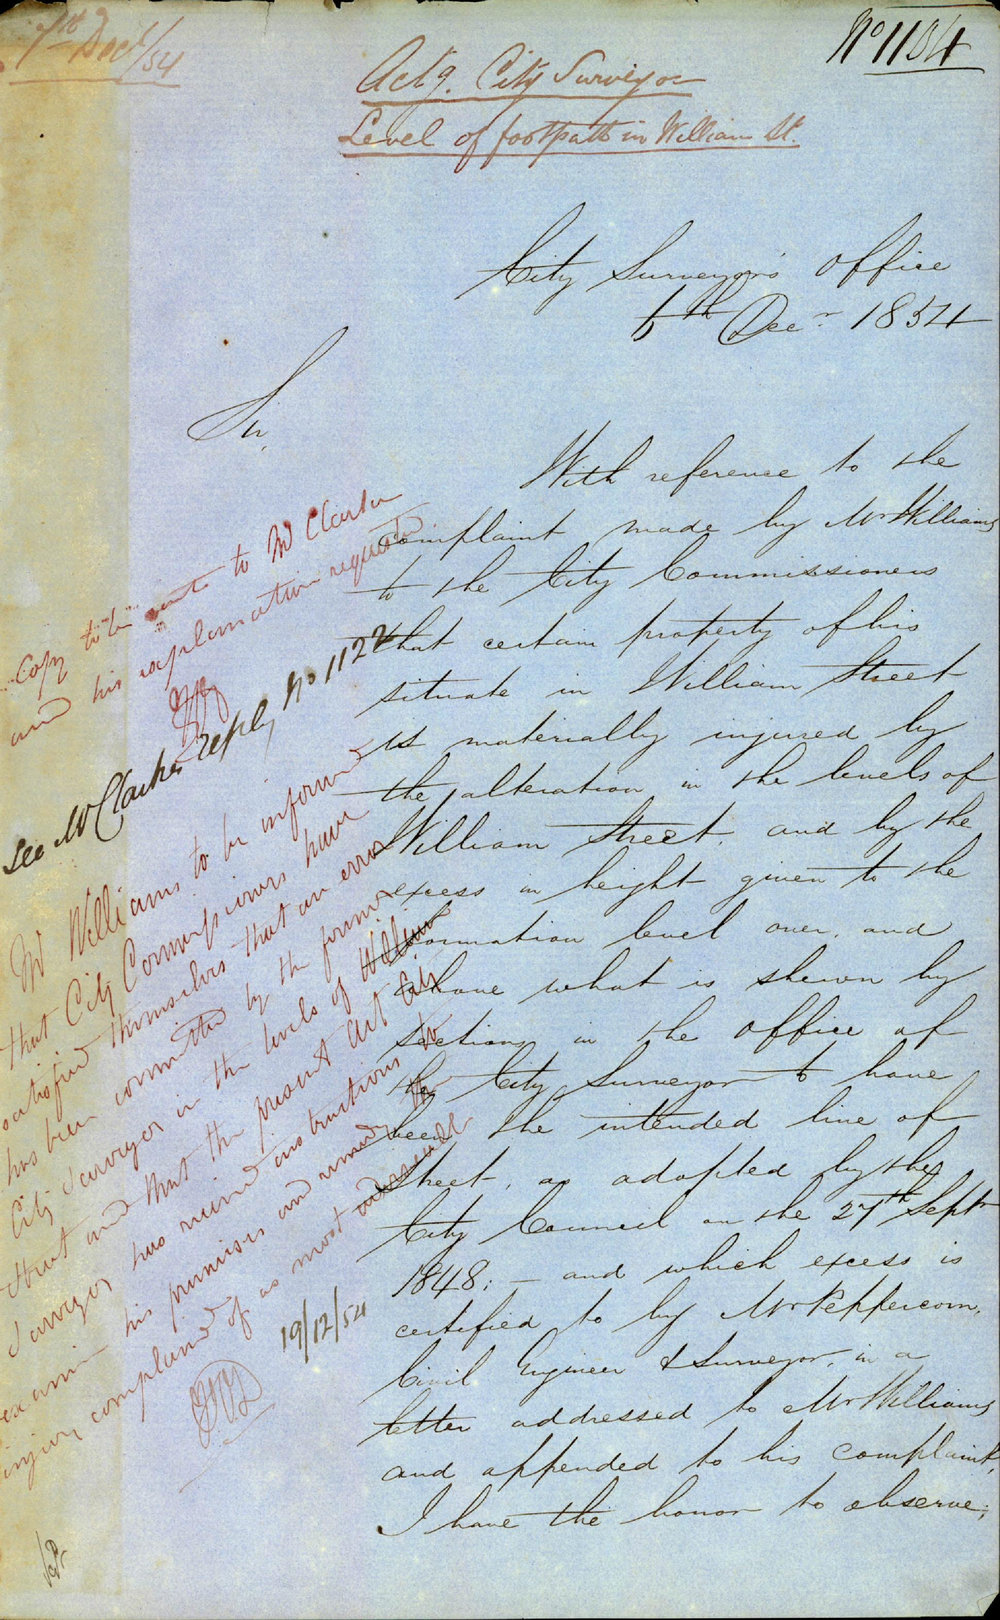 7th Decr/54
No 1104
Actg. City Surveyor
Level of footpath in William St.
City Surveyor's Office
6th Decr 1854
Sir,
With reference to the
complaint made by Mr Williams
to the City Commissioners
that certain property of his
situate in William Street
is materially injured by
the alteration in the levels of
William Street, and by the
excess in height given to the
formation level over, and
above what is shewn by
Sections in the Office of
the City Surveyor to have
been the intended line of
Street, as adopted by the
City Council on the 27th Septr
1848; — and which excess is
certified to by Mr Peppercorn,
Civil Engineer & Surveyor, in a
letter addressed to Mr Williams
and appended to his complaint,
I have the honor to observe;
Copy to be sent to Mr Clarke
and his explanation requested
See Mr Clarke's reply No 1122
Mr Williams to be informed
that City Commissioners have
satisfied themselves that an error
has been committed by the former
City Surveyor in the levels of William
Street and that the present Act City
Surveyor has received instructions to
examine his premises and remedy the
injury complained of as most
19/12/54